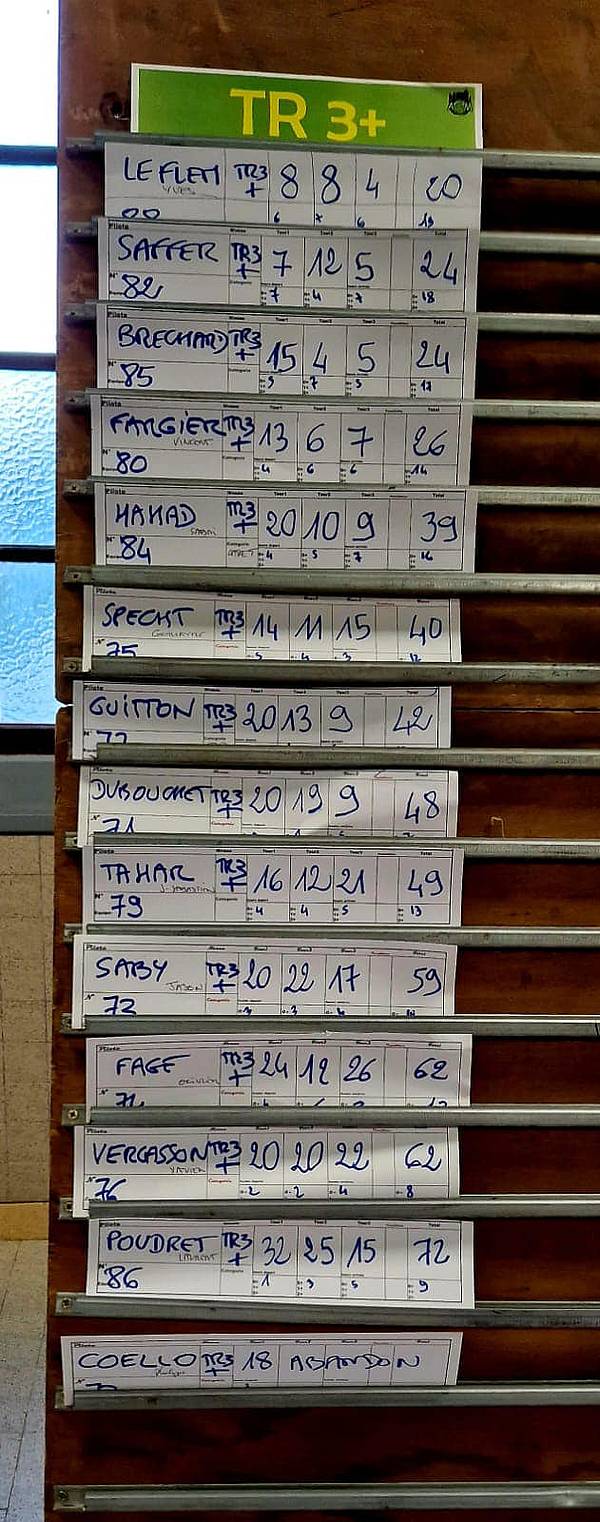 TR 3+
LE FLEM TR3 + 8 8 4 20
YVES
6 6 19
Pilote
SAFFER TR3 + 7 12 5 24
N° 82 7 4 7 18
Pilote
BRECHARD TR3 + 15 4 5 24
N° 85 5 7 5 17
Pilote
FARGIER TR3 + 13 6 7 26
VINCENT
N° 80 4 6 6 14
Pilote
HAMAD TR3 + 20 10 9 39
N° 84 4 5 7 16
Pilote
SPECHT TR3 + 14 11 15 40
GUILLAUME
N° 75 5 4 3 12
Pilote
GUITTON TR3 + 20 13 9 42
77
DUBOUCHET TR3 + 20 19 9 48
Pilote
TAHAR TR3 + 16 12 21 49
J. SEBASTIEN
N° 79 4 4 5 13
Pilote
SABY TR3 + 20 22 17 59
JASON
N° 72
Pilote
FAGE TR3 + 24 12 26 62
OLIVIER
Pilote
VERGASSON TR3 + 20 20 22 62
XAVIER
N° 76 2 2 4 8
Pilote
POUDRET TR3 + 32 25 15 72
LAURENT
N° 86 1 3 5 9
Pilote
COELLO TR3 + 18 ABANDON